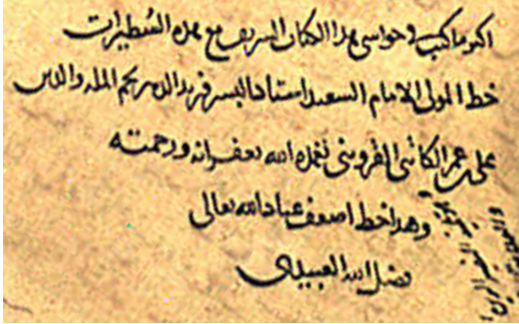 اكثر ما كتب في حواشي هذا الكتاب الشريف مع هذه السُطيرات
خط المولى الامام السعيد استاد البشر فريد الدهر نجم المله والدين
علي بن عمر الكاتبي القزويني تغمده الله بغفرانه ورحمته
وهذا خط اضعف عباد الله تعالى
فضل الله العبيدي